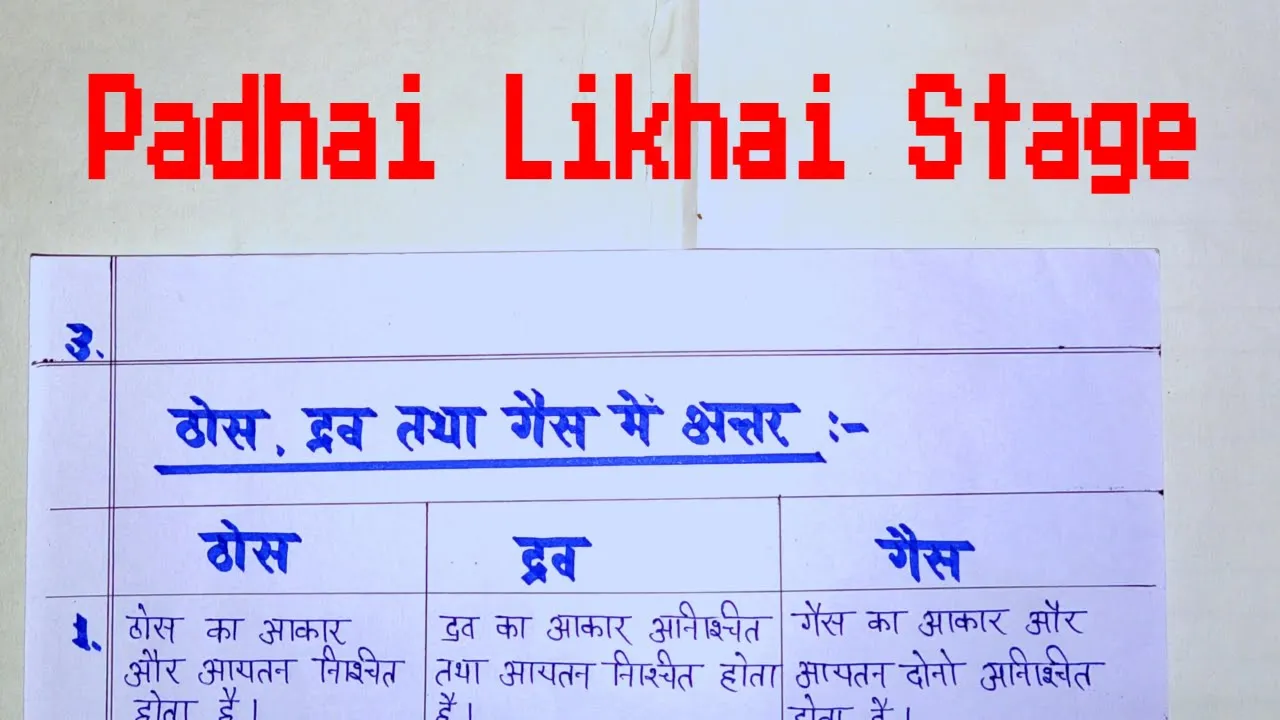 Padhai Likhai Stage
3.
ठोस, द्रव तथा गैस में अन्तर :-
ठोस
द्रव
गैस
1.
ठोस का आकार
और आयतन निश्चित
होता है।
द्रव का आकार अनिश्चित
तथा आयतन निश्चित होता
है।
गैस का आकार और
आयतन दोनो अनिश्चित
होता है।